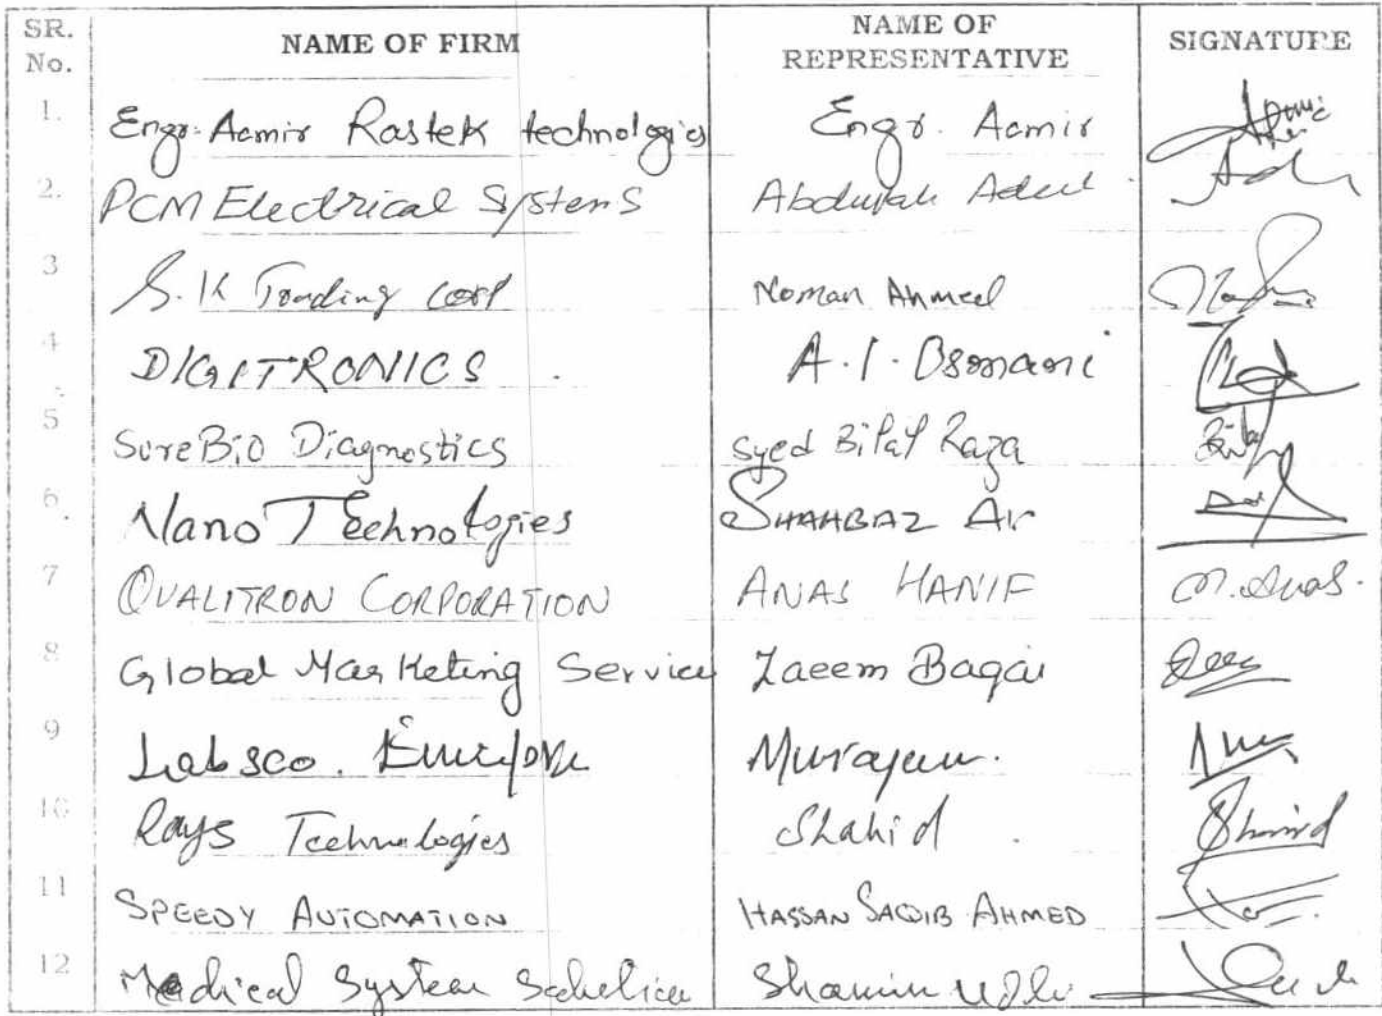 SR. No. NAME OF FIRM NAME OF REPRESENTATIVE SIGNATURE
1. Engr. Aamir Rastek technologies Engr. Aamir
2. PCM Electrical Systems Abdullah Adeel
3 S.K Trading Corp Noman Ahmed
4 DIGITRONICS A.I. Osmani
5 SureBio Diagnostics Syed Bilal Raza
6 Nano Technologies SHAHBAZ Ali
7 QUALITRON CORPORATION ANAS HANIF M. Anas.
8 Global Marketing Service Zaeem Baqai
9 Labsco.
10 Rays Technologies Shahid Shahid
11 SPEEDY AUTOMATION HASSAN SAQIB AHMED
12 Medical System Shamim